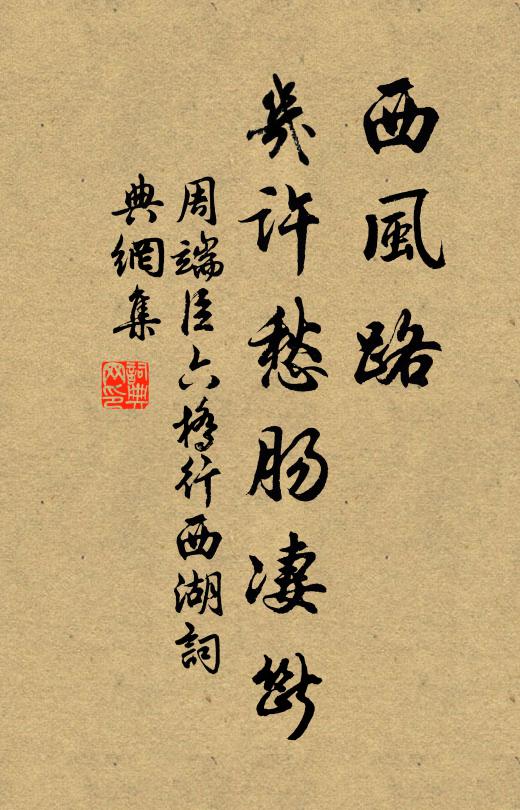 西風路
幾许愁肠凄斷
周端臣六橋行西湖詞
典網集
詞典
网印